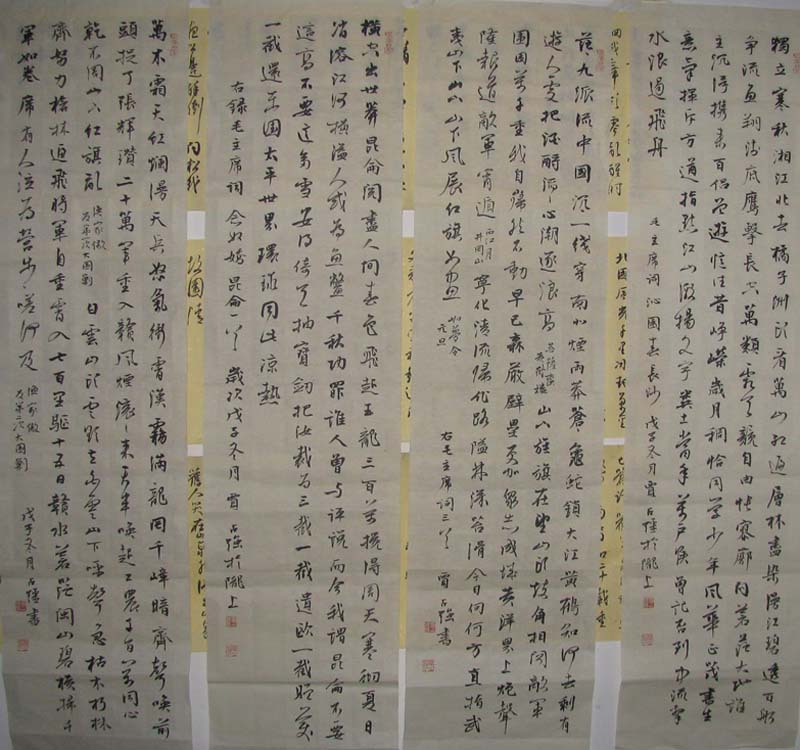 獨立寒秋湘江北去橘子洲頭看萬山紅遍層林盡染漫江碧透百舸
争流魚翔淺底鷹擊長空萬類霜天競自由悵寥廓問蒼茫大地誰
主沉浮携來百侣曾遊憶往昔崢嶸歲月稠恰同學少年風華正茂書生
意氣揮斥方遒指點江山激揚文字糞土當年萬户侯曾記否到中流擊
水浪遏飛舟
毛主席詞沁園春長沙 戊子冬月賈占強於隴上
茫九派流中國沉一綫穿南北煙雨莽蒼蒼龜蛇鎖大江黄鶴知何去剩有
遊人處把酒酹滔滔心潮逐浪高 菩薩蠻黄鶴樓 山下旌旗在望山頭鼓角相聞敵軍
圍困萬千重我自巋然不動早已森嚴壁壘更加衆志成城黄洋界上炮聲
隆報道敵軍宵遁 西江月井岡山 寧化清流歸化路隘林深苔滑今日向何方直指武
夷山下山下山下風展紅旗如畫 如夢令元旦
右毛主席詞三首 賈占強書
横空出世莽昆侖閱盡人間春色飛起玉龍三百萬攪得周天寒徹夏日
消溶江河横溢人或為魚鱉千秋功罪誰人曾與評説而今我謂昆侖不要
這高不要這多雪安得倚天抽寶劍把汝裁為三截一截遺歐一截贈美
一截還東國太平世界環球同此涼熱
右録毛主席詞 念奴嬌 昆侖一首 歲次戊子冬月 賈占強於隴上
萬木霜天紅爛漫天兵怒氣衝霄漢霧滿龍岡千嶂暗齊聲唤前
頭捉了張輝瓚二十萬軍重入贛風煙滚滚來天半唤起工農千百萬同心
幹不周山下紅旗亂 漁家傲反第一次大圍剿 白雲山頭雲欲立白雲山下呼聲急枯木朽株
齊努力槍林逼飛將軍自重霄入七百里驅十五日贛水蒼茫閩山碧横掃千
軍如卷席有人泣為營步步嗟何及 漁家傲反第二次大圍剿 戊子冬月占強書